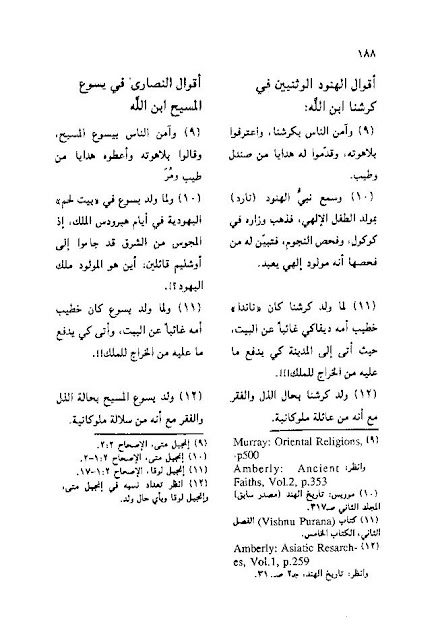 ١٨٨
أقوال الهنود الوثنيين في
كرشنا ابن اللَّه:
(٩) وآمن الناس بكرشنا، واعترفوا
بلاهوته، وقدّموا له هدايا من صندل
وطيب.
(١٠) وسمع نبيُّ الهنود (نارد)
بمولد الطفل الإلهي، فذهب وزاره في
كوكول، وفحص النجوم، فتبيّن له من
فحصها أنه مولود إلهي يعبد.
(١١) لما ولد كرشنا كان «ناندا»
خطيب أمه ديفاكي غائباً عن البيت،
حيث أتى إلى المدينة كي يدفع ما
عليه من الخراج للملك!!.
(١٢) ولد كرشنا بحال الذل والفقر
مع أنه من عائلة ملوكانية.
(٩) Murray: Oriental Religions,
p500-
وانظر: Amberly: Ancient
Faiths, Vol.2, p.353
(١٠) موريس: تاريخ الهند (مصدر سابق)
المجلد الثاني صـ٣١٧.
(١١) كتاب (Vishnu Purana) الفصل
الثاني، الكتاب الخامس.
(١٢) Amberly: Asiatic Resarch-
es, Vol.1, p.259
وانظر: تاريخ الهند، جـ٢ صـ٣١٠.
أقوال النصارى في يسوع
المسيح ابن اللَّه
(٩) وآمن الناس بيسوع المسيح،
وقالوا بلاهوته وأعطوه هدايا من
طيب ومُرّ
(١٠) ولما ولد يسوع في «بيت لحم»
اليهودية في أيام هيرودس الملك، إذ
المجوس من الشرق قد جاءوا إلى
أوشليم قائلين: أين هو المولود ملك
اليهود؟!.
(١١) ولما ولد يسوع كان خطيب
أمه غائباً عن البيت، وأتى كي يدفع
ما عليه من الخراج للملك!!.
(١٢) ولد يسوع المسيح بحالة الذل
والفقر مع أنه من سلالة ملوكانية.
(٩) إنجيل متى، الإصحاح ٢:٢.
(١٠) إنجيل متى، الإصحاح ١:٢-٢.
(١١) إنجيل لوقا، الإصحاح ١:٢-١٧.
(١٢) انظر تعداد نسبه في إنجيل متى،
وإنجيل لوقا وبأي حال ولد.